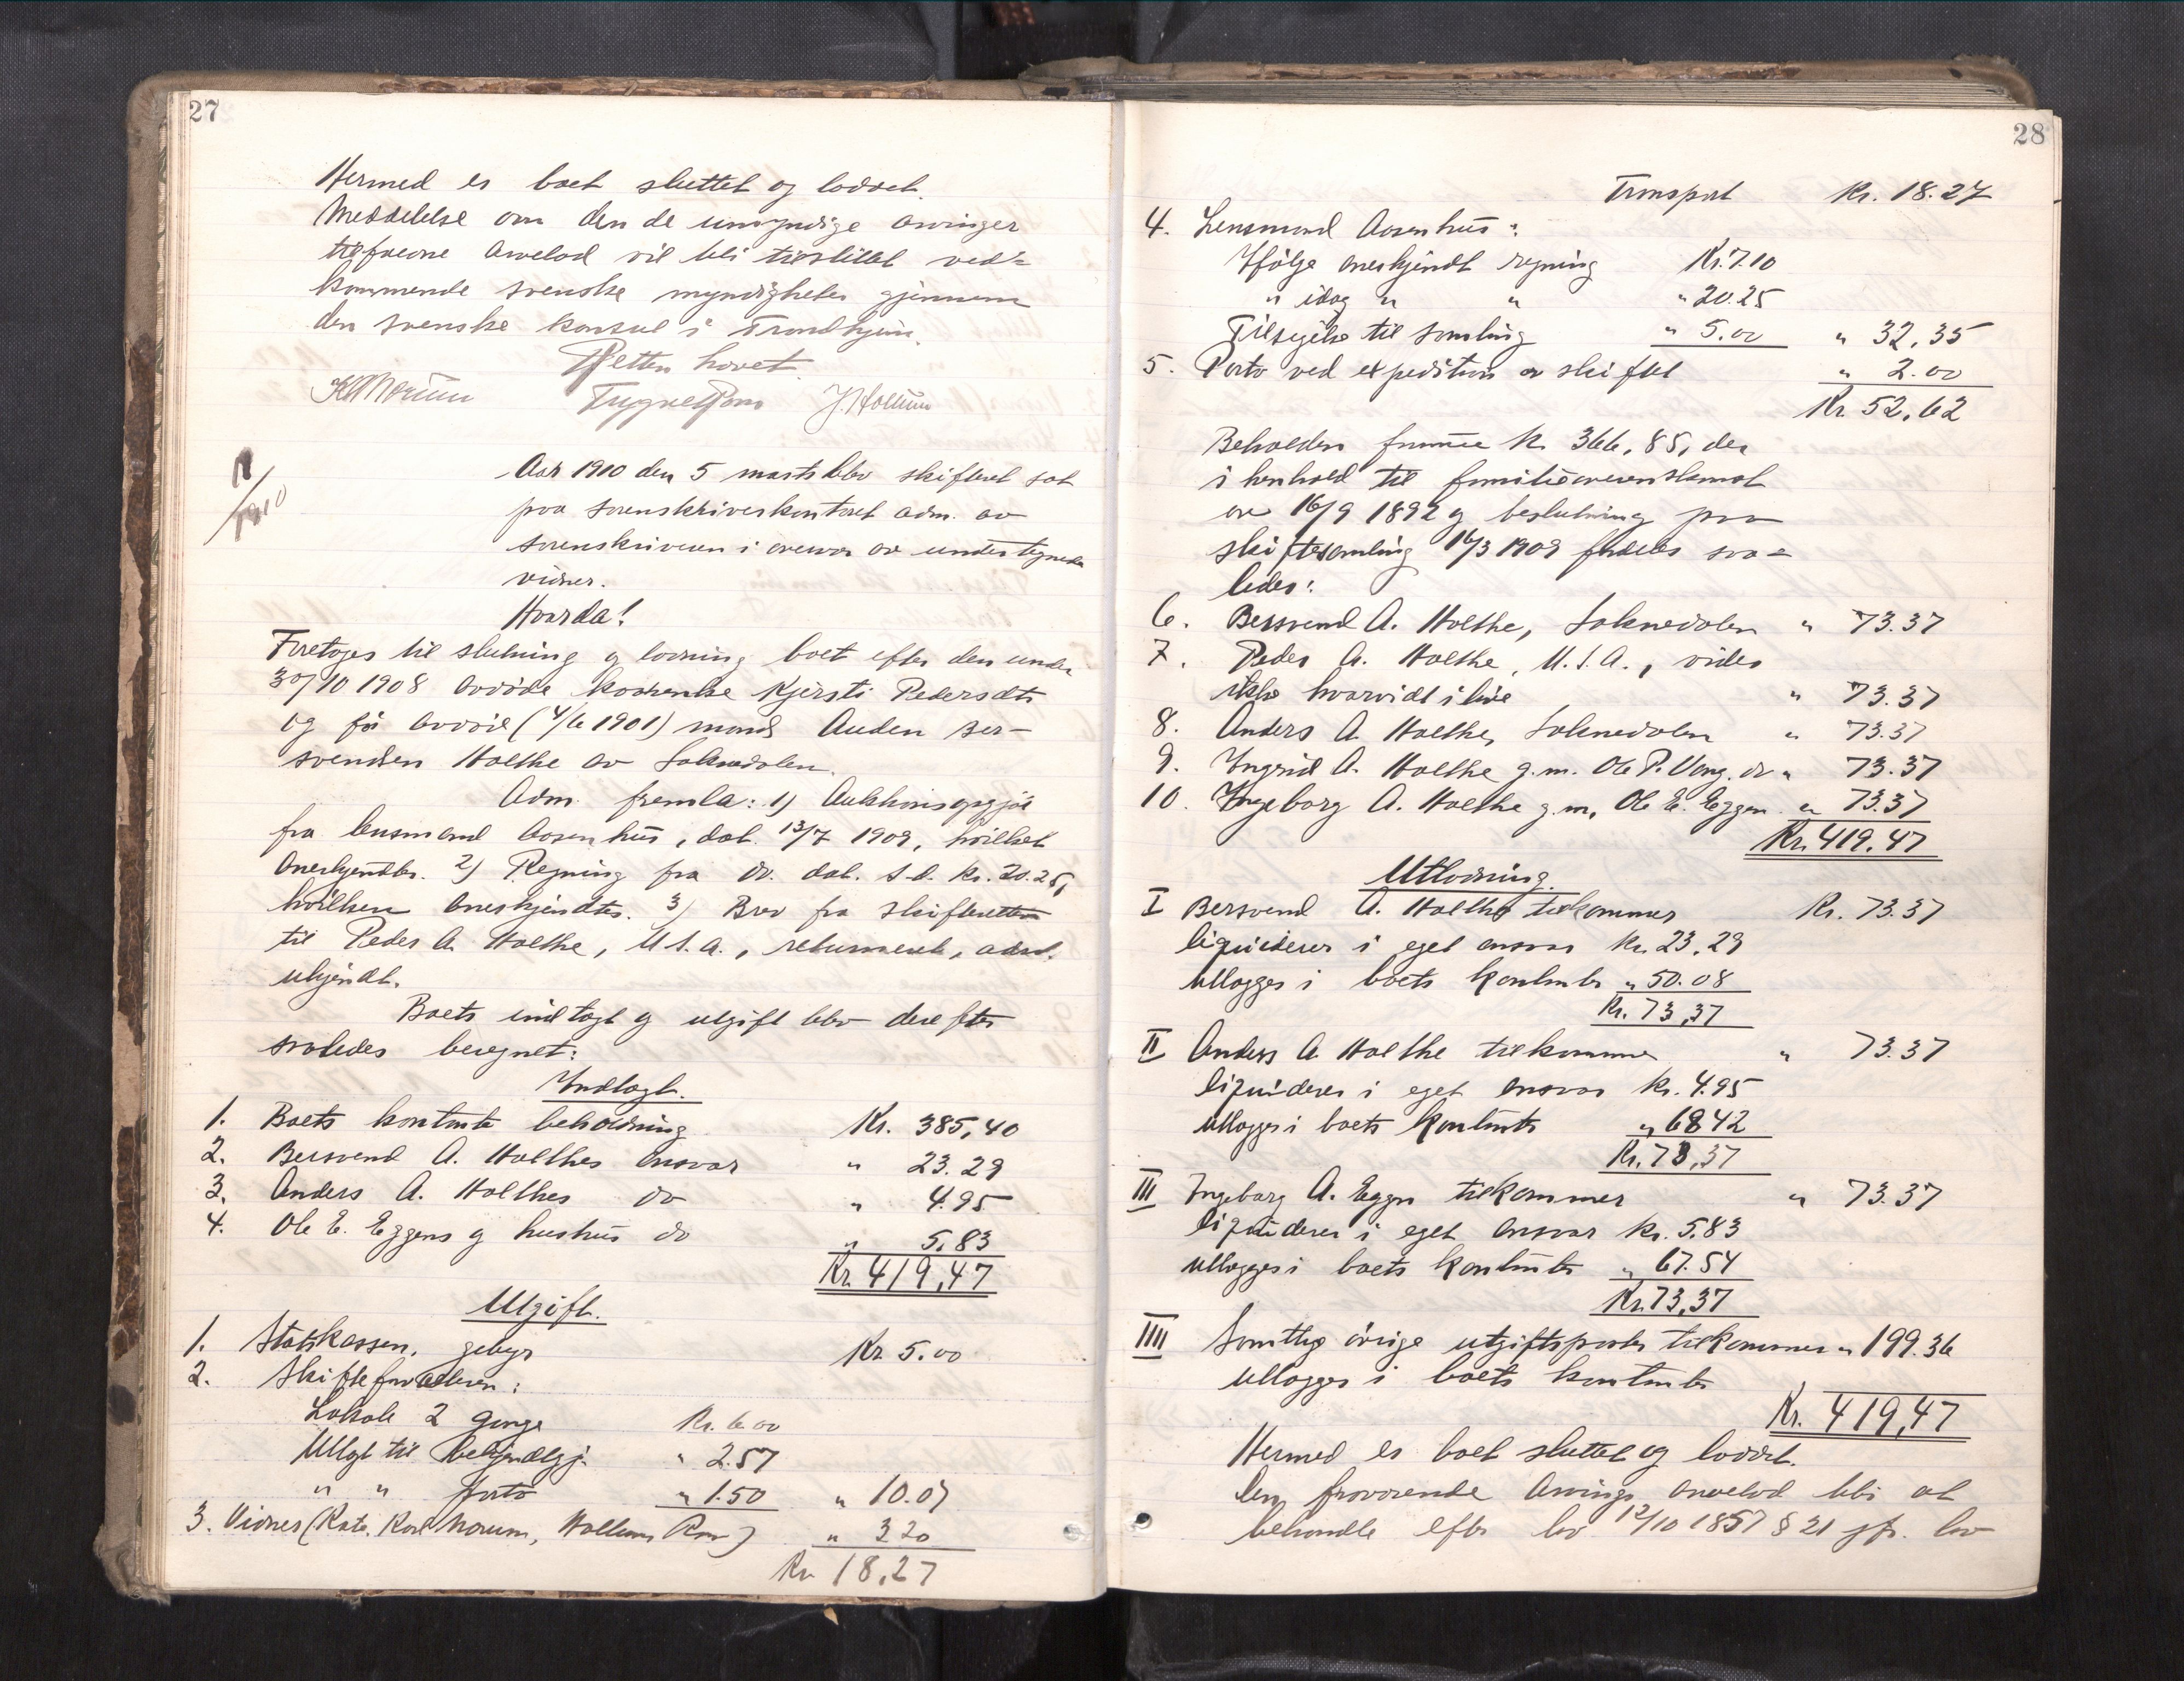 27
Hermed er boet sluttet og loddet.
Meddelelse om den de umyndige arvinger
tilfaldne arvelod vil bli tilstillet ved=
kommende svenske myndigheter gjennem
den svenske konsul i Trondhjem.
Retten hævet
K Morum Trygve Rom J. Hollum
1910
Aar 1910 den 5 marts blev skifteret sat
paa sorenskriverkontoret adm. av
sorenskriveren i overvær av undertegnede
vidner.
Hvorda!
Foretoges til slutning og lodning boet efter den under
30/10 1908 avdøde kaarenke Kjersti Pedersdtr
og før avdøde (4/6 1901) mand Anden Ber-
svendsen Holthe av Soknedalen.
Adm. fremla: 1) Auktionsopgjør
fra lensmand Aasenhus, dat. 13/7 1909, hvilket
anerkjendtes. 2) Regning fra do. dat. s.d. kr. 20.25,
hvilken anerkjendtes. 3) Brev fra skifteretten
til Peder A. Holthe, U.S.A., returneret, adres.
ukjendt.
Boets indtægt og utgift blev derefter
saaledes beregnet:
Indtægt.
1. Boets kontante beholdning Kr. 385,40
2. Bersvend A. Holthes ansvar " 23.29
3. Anders A. Holthes do " 4.95
4. Ole E. Eggens og hustrus do " 5,83
Kr. 419,47
Utgift.
1. Statskassen, gebyr Kr. 5.00
2. Skifteforvalteren:
Lokale 2 gange Kr. 6.00
Utlagt til bekjendtgj. " 2.57
" " porto " 1.50 " 10.07
3. Vidner (Kato. Karl Morum, Hollum, Rom) " 3 20
Kr 18,27
28
Transport Kr. 18.27
4. Lensmand Aasenhus:
Ifølge anerkjendt regning Kr. 7.10
" idag " " " 20.25
Tilsigelse til samling " 5.00 " 32,35
5. Porto ved expedition av skiftet " 2.00
Kr. 52,62
Beholden formue kr. 366,85, der
i henhold til familieoverenskomst
av 16/9 1892 og beslutning paa
skiftesamling 16/3 1909 fordeles saa=
ledes:
6. Bersvend A. Holthe, Soknedalen " 73.37
7. Peder A. Holthe, U.S.A., vides
ikke hvorvidt i live " 73.37
8. Anders A. Holthe, Soknedalen " 73.37
9. Ingrid A. Holthe g.m. Ole P. Vang. do " 73.37
10. Ingeborg A. Holthe g.m. Ole E. Eggen. " 73.37
Kr. 419.47
Utlodning.
I Bersvend A. Holthe tilkommer Kr. 73.37
liquiderer i eget ansvar kr. 23,29
utlægges i boets kontanter " 50.08
Kr. 73,37
II Anders A. Holthe tilkommer " 73.37
liquiderer i eget ansvar kr. 4.95
utlægges i boets kontanter " 6842
Kr. 73,37
III Ingeborg A. Eggen tilkommer " 73.37
liquiderer i eget ansvar kr. 5.83
utlægges i boets kontanter " 67.54
Kr. 73,37
IIII Samtlige øvrige utgiftsposter tilkommer " 199.36
utlægges i boets kontanter
Kr. 419,47
Hermed er boet sluttet og loddet.
Den fraværende arvings arvelod blir at
behandle efter lov 12/10 1857 § 21 jfr. lov